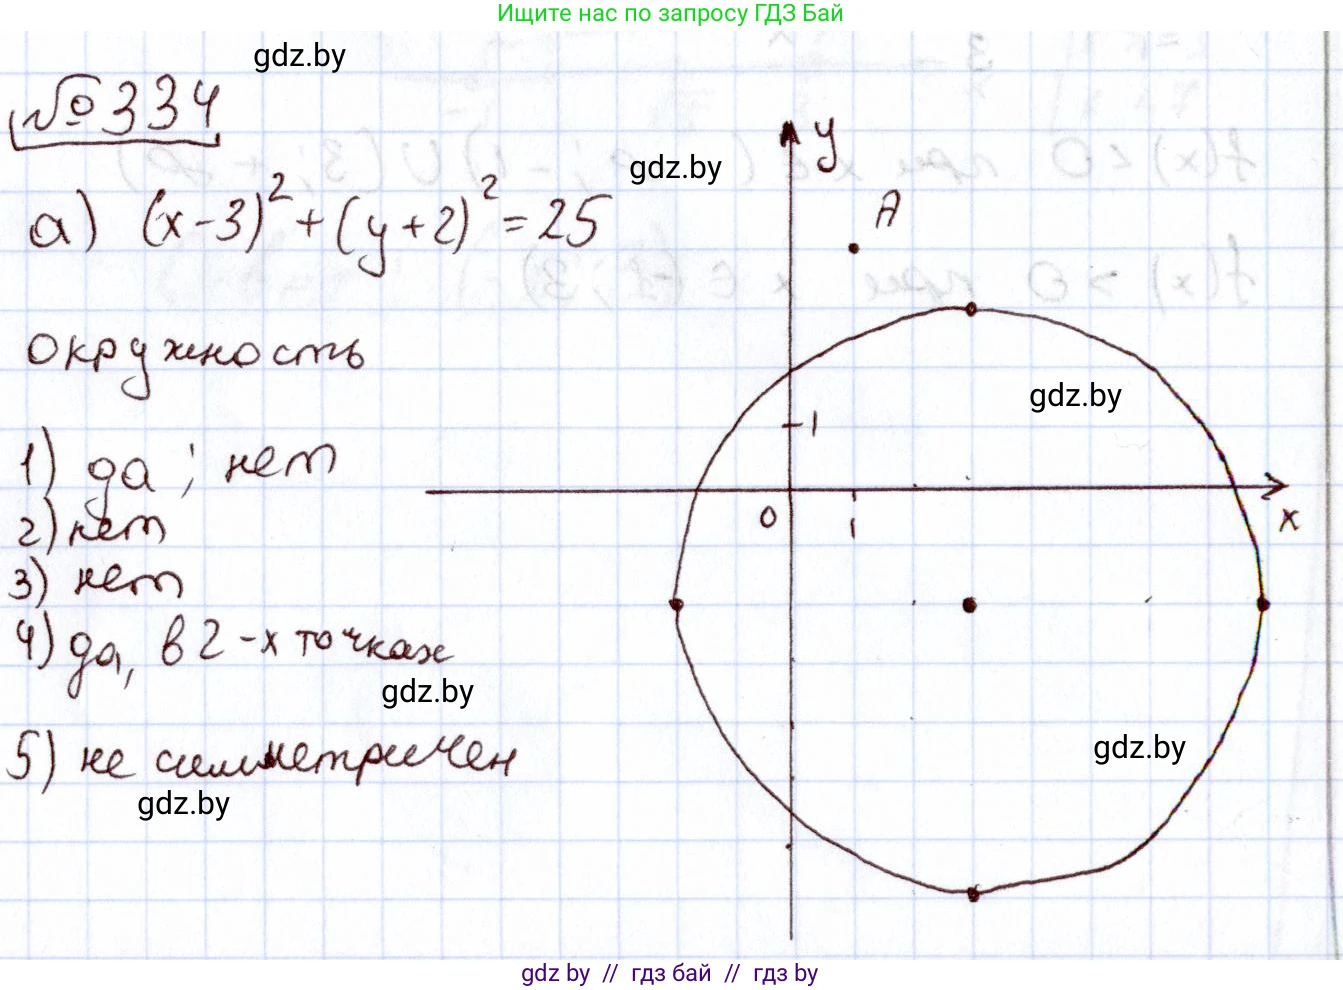 Ищите нас по запросу ГДЗ Бай
gdz.by
№ 334
gdz.by
y
A
а) (x-3)² + (y+2)² = 25
окружность
gdz.by
1
0
1
x
1) да ; нет
2) нет
3) нет
4) да, в 2-х точках
gdz.by
5) не симметричен
gdz.by
gdz.by
gdz by // гдз бай // гдз by